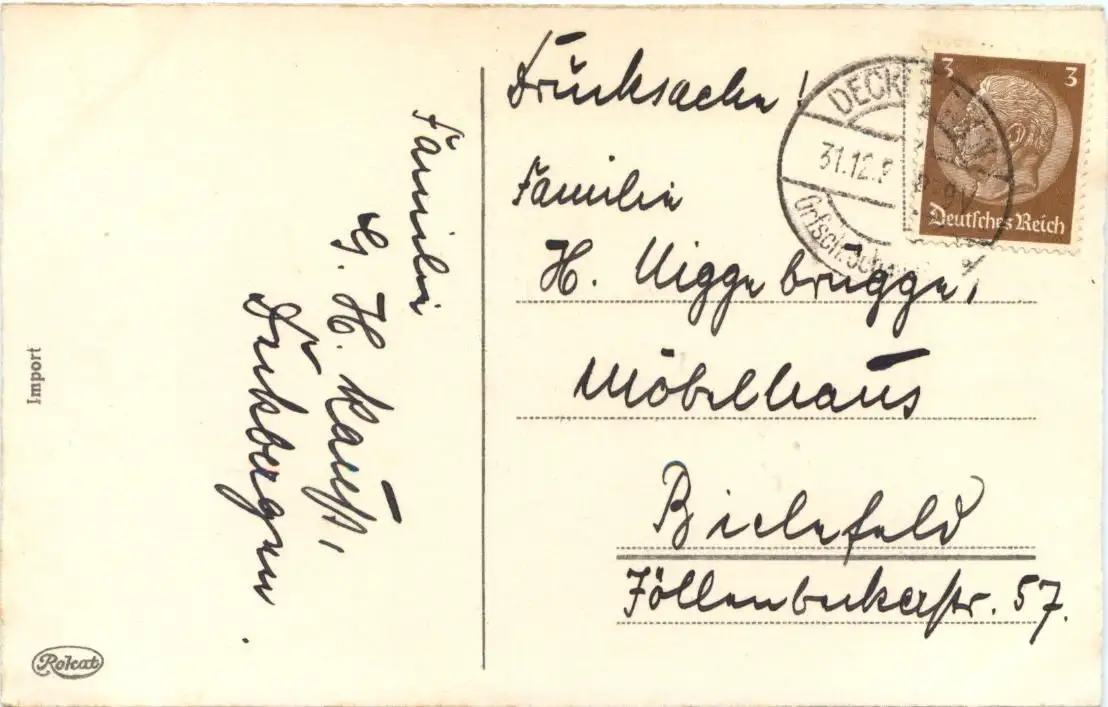 Familie
G. H. Kauß,
Deckbergen
.
Import
Rokat
Drucksache!
Familie
H. Niggebrügge,
Möbelhaus
Bielefeld
Jöllenbeckerstr. 57.
DECK
31.12.
Grfsch. Scha
3 3
Deutsches Reich